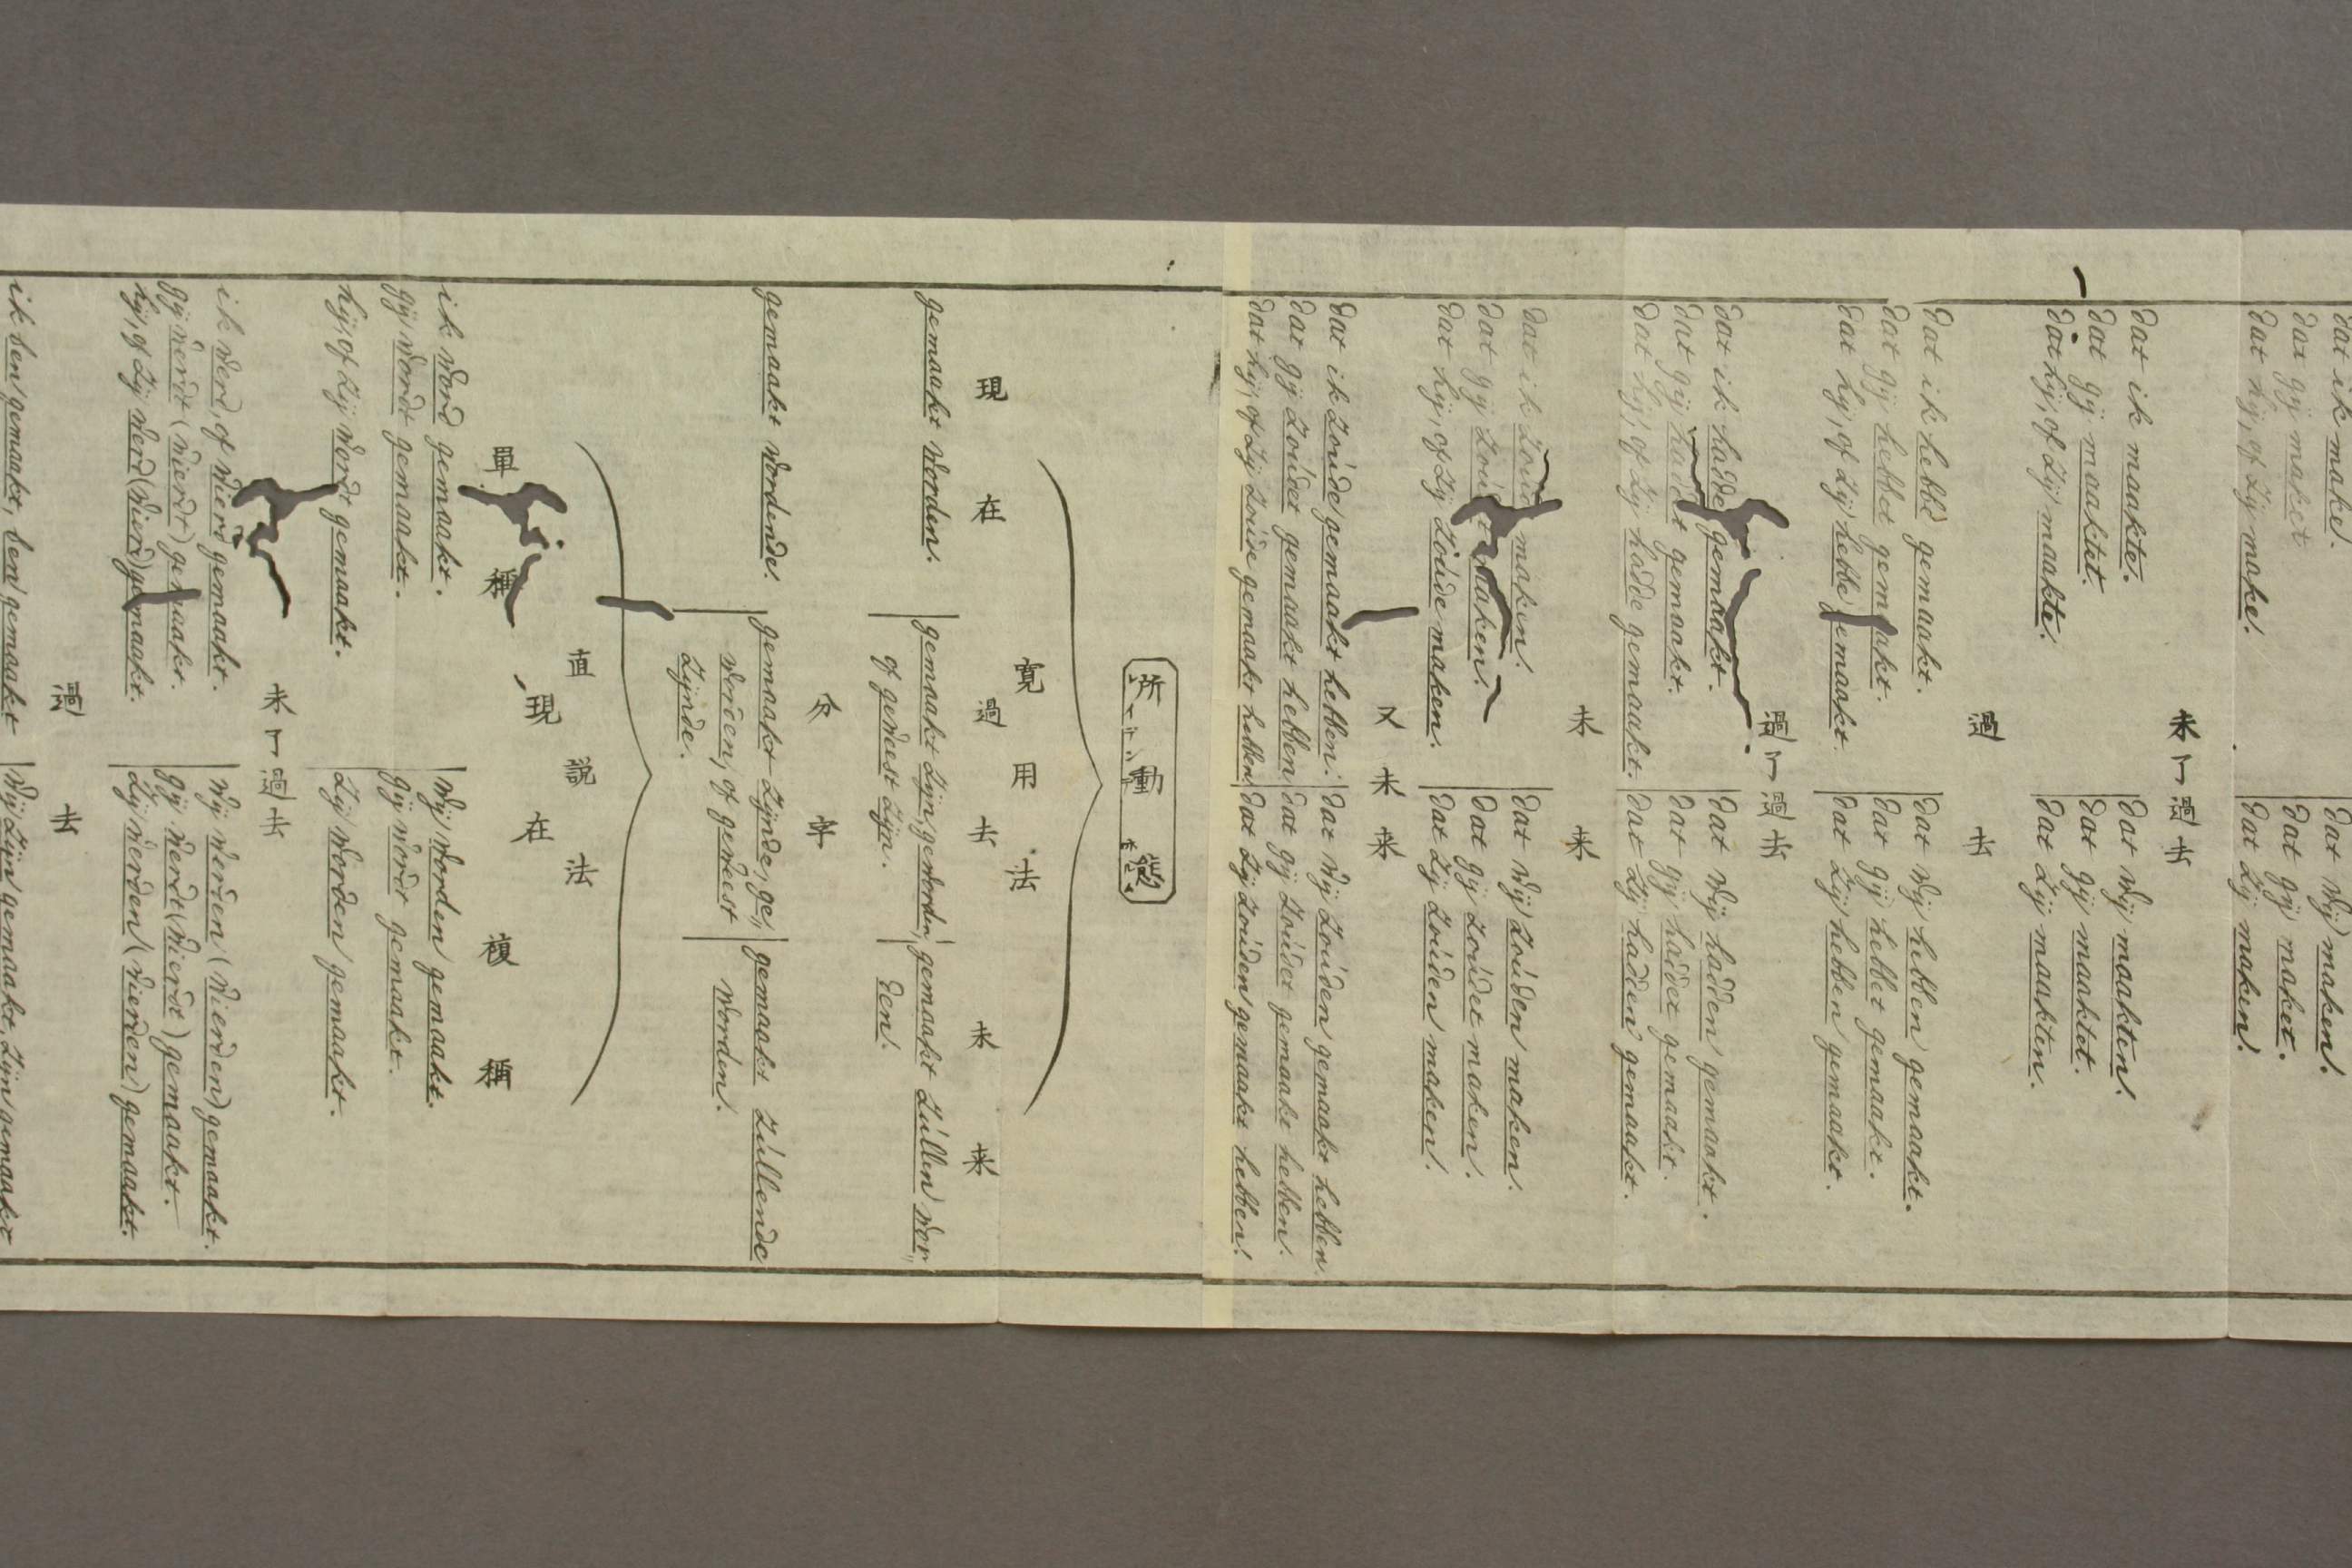 dat ik make.
dat gij maket
dat hij, of zij make.
dat wij maken.
dat gij maket.
dat zij maken.
未レ過去
dat ik maakte.
dat gij maaktet.
dat hij, of zij maakte.
dat wij maakten.
dat gij maaktet.
dat zij maakten.
過去
dat ik hebbe gemaakt.
dat gij hebbet gemaakt.
dat hij, of zij hebbe gemaakt.
dat wij hebben gemaakt.
dat gij hebbet gemaakt.
dat zij hebben gemaakt.
過レ過去
dat ik hadde gemaakt.
dat gij haddet gemaakt.
dat hij, of zij hadde gemaakt.
dat wij hadden gemaakt.
dat gij haddet gemaakt.
dat zij hadden gemaakt.
未来
dat ik zoude maken.
dat gij zoudet maken.
dat hij, of zij zoude maken.
dat wij zouden maken.
dat gij zoudet maken.
dat zij zouden maken.
又未来
dat ik zoude gemaakt hebben.
dat gij zoudet gemaakt hebben
dat hij, of zij zoude gemaakt hebben.
dat wij zouden gemaakt hebben
dat gij zoudet gemaakt hebben.
dat zij zouden gemaakt hebben.
所動態
寛用法
現在
過去
未来
gemaakt worden.
gemaakt zijn, geworden,
of geweest zijn.
gemaakt zullen wor„
den.
分字
gemaakt wordende.
gemaakt zijnde, ge„
worden, of geweest
zijnde.
gemaakt zullende
worden.
直説法
現在
單稱
複稱
ik word gemaakt.
gij wordt gemaakt.
hij, of zij wordt gemaakt.
wij worden gemaakt.
gij wordt gemaakt.
zij worden gemaakt.
未レ過去
ik werd, of wierd gemaakt.
gij werdt (wierdt) gemaakt.
hij, of zij werd (wierd) gemaakt.
wij werden (wierden) gemaakt.
gij werdt (wierdt) gemaakt.
zij werden (wierden) gemaakt.
過去
ik ben gemaakt, ben gemaakt
wij zijn gemaakt, zijn gemaakt